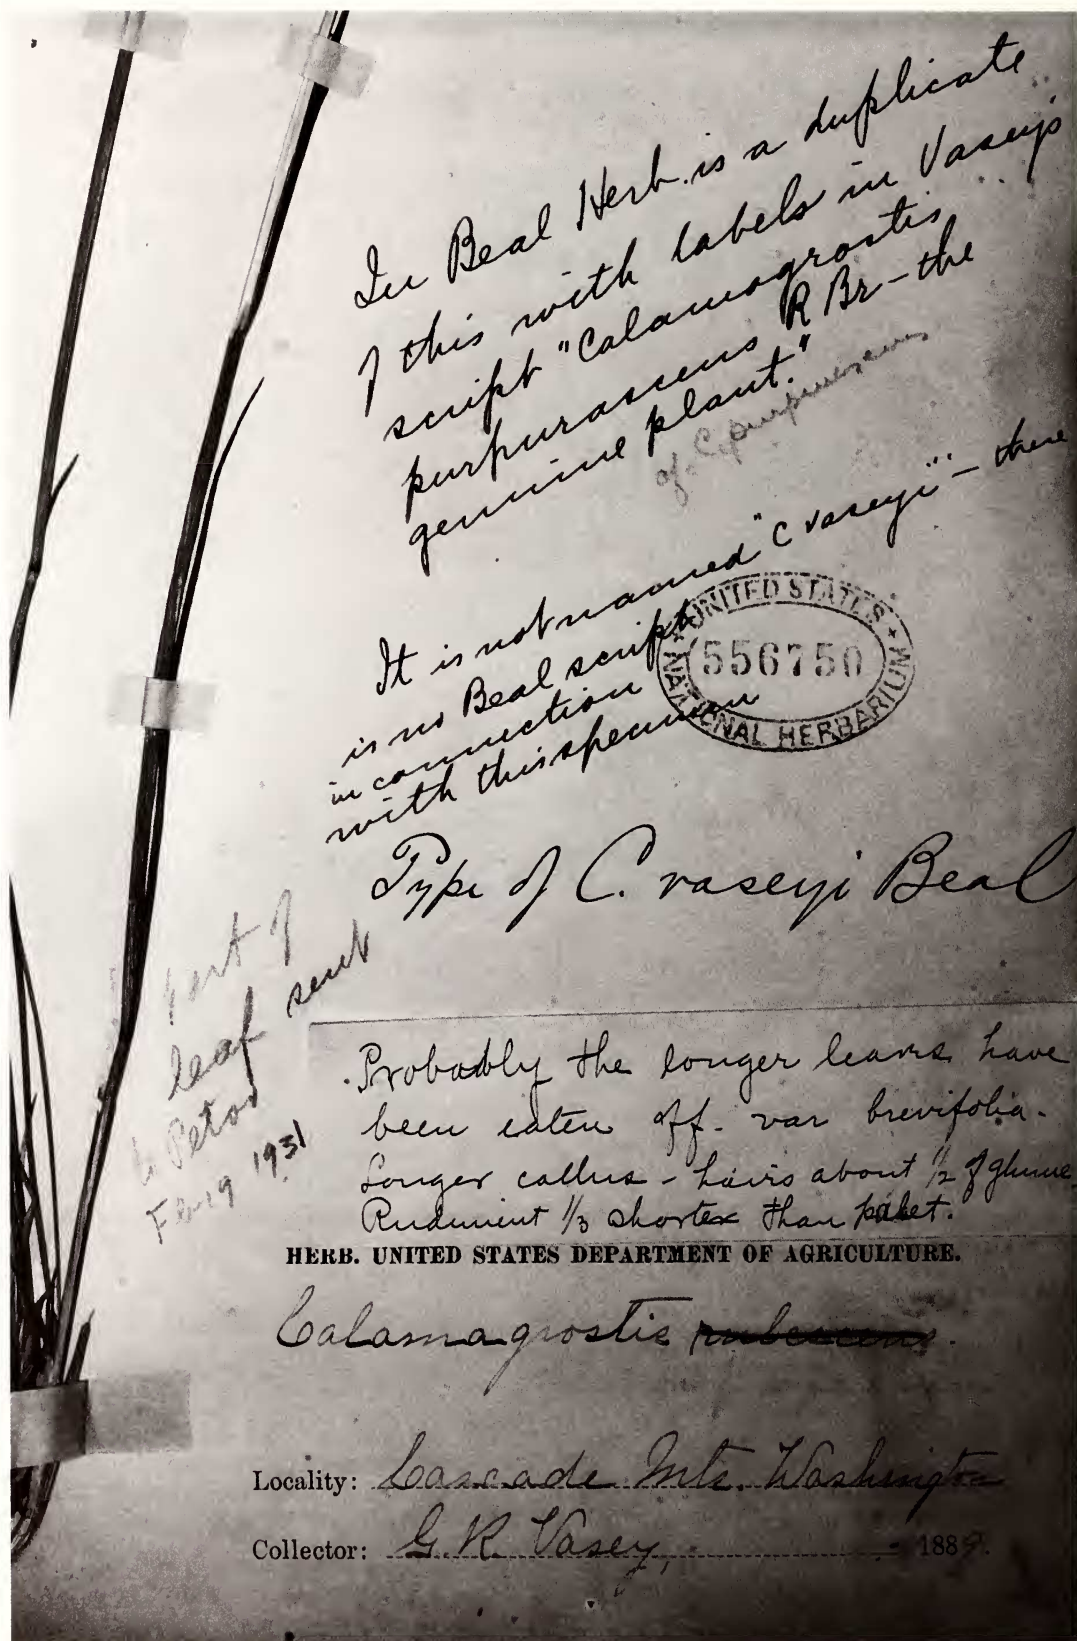 In Beal Herb. is a duplicate
of this with labels in Vasey's
script "Calamagrostis
purpurascens R Br - the
genuine plant."
of C. purpurascens
It is not named "C vaseyi" - there
is no Beal script
in connection
with this specimen
UNITED STATES
556750
NATIONAL HERBARIUM
Type of C. vaseyi Beal
Part of
leaf sent
to Petrov
Feb 19 1931
Probably the longer leaves have
been eaten off. var brevifolia.
Longer callus - hairs about 1/2 of glume
Rudiment 1/3 shorter than palet.
HERB. UNITED STATES DEPARTMENT OF AGRICULTURE.
Calamagrostis rubescens.
Locality: Cascade Mts. Washington
Collector: G. R. Vasey, 1889.